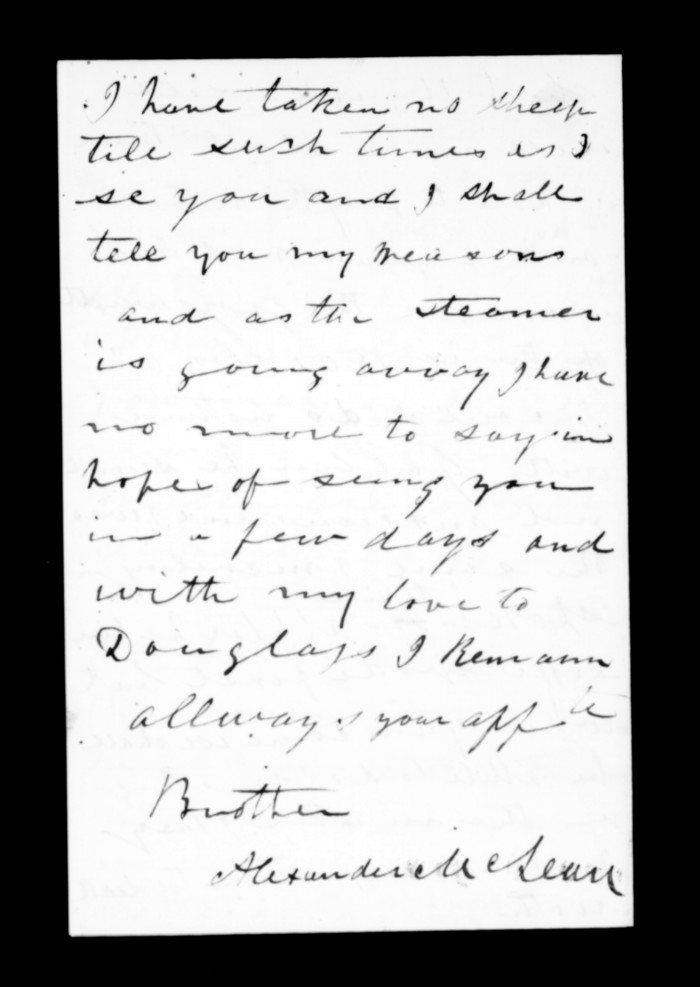 I have taken no sheep
till such times as I
se you and I shall
tell you my reasons
and as the steamer
is going away I have
no more to say in
hope of seing you
in a few days and
with my love to
Douglass I Remann
allways your affte
Brother
Alexander McLean